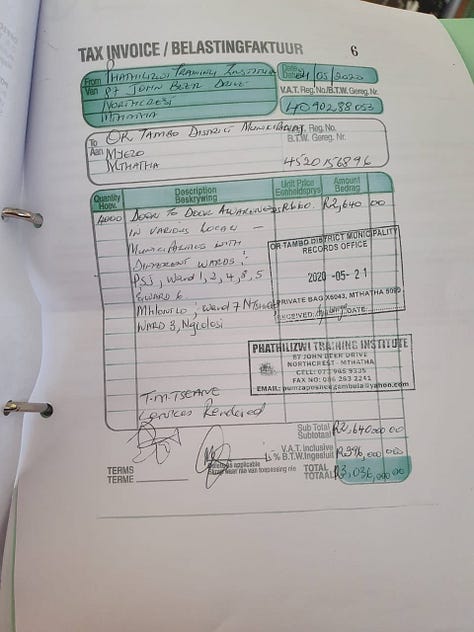 TAX INVOICE / BELASTINGFAKTUUR 6
From PHATHILIZWI TRAINING INSTITUTE
Van 87 JOHN BEER DRIVE
NORTHCREST
MTHATHA
Date 21/05/2020
V.A.T. Reg. No./B.T.W. Gereg. Nr.
4090288053
To OR TAMBO DISTRICT MUNICIPALITY
Aan MYEZO
MTHATHA
Reg. No.
B.T.W. Gereg. Nr.
4520156896
Quantity Description Unit Price Amount
Hoev. Beskrywing Eenheidsprys Bedrag
4000 DOOR TO DOOR AWARENESS R660. R2,640 00
IN VARIOUS LOCAL -
MUNICIPALITIES WITH
DIFFERENT WARDS:
PSJ, Ward 1, 2, 4, 8, 5
& WARD 6
Mhlontlo; Ward 7
WARD 3, Ngcolosi
OR TAMBO DISTRICT MUNICIPALITY
RECORDS OFFICE
2020 -05- 21
PRIVATE BAG X6043, MTHATHA 5099
RECEIVED: DATE:
PHATHILIZWI TRAINING INSTITUTE
87 JOHN BEER DRIVE
NORTHCREST - MTHATHA
CELL: 073 985 9335
FAX NO: 086 263 2241
EMAIL:
T.M. TSEANE
Services Rendered
Sub Total R2,640,000 00
Subtotaal
V.A.T. Inclusive R396,000 00
% B.T.W. Ingesluit
TERMS
TERME
Delete as applicable
TOTAL R3,036,000 00
TOTAAL